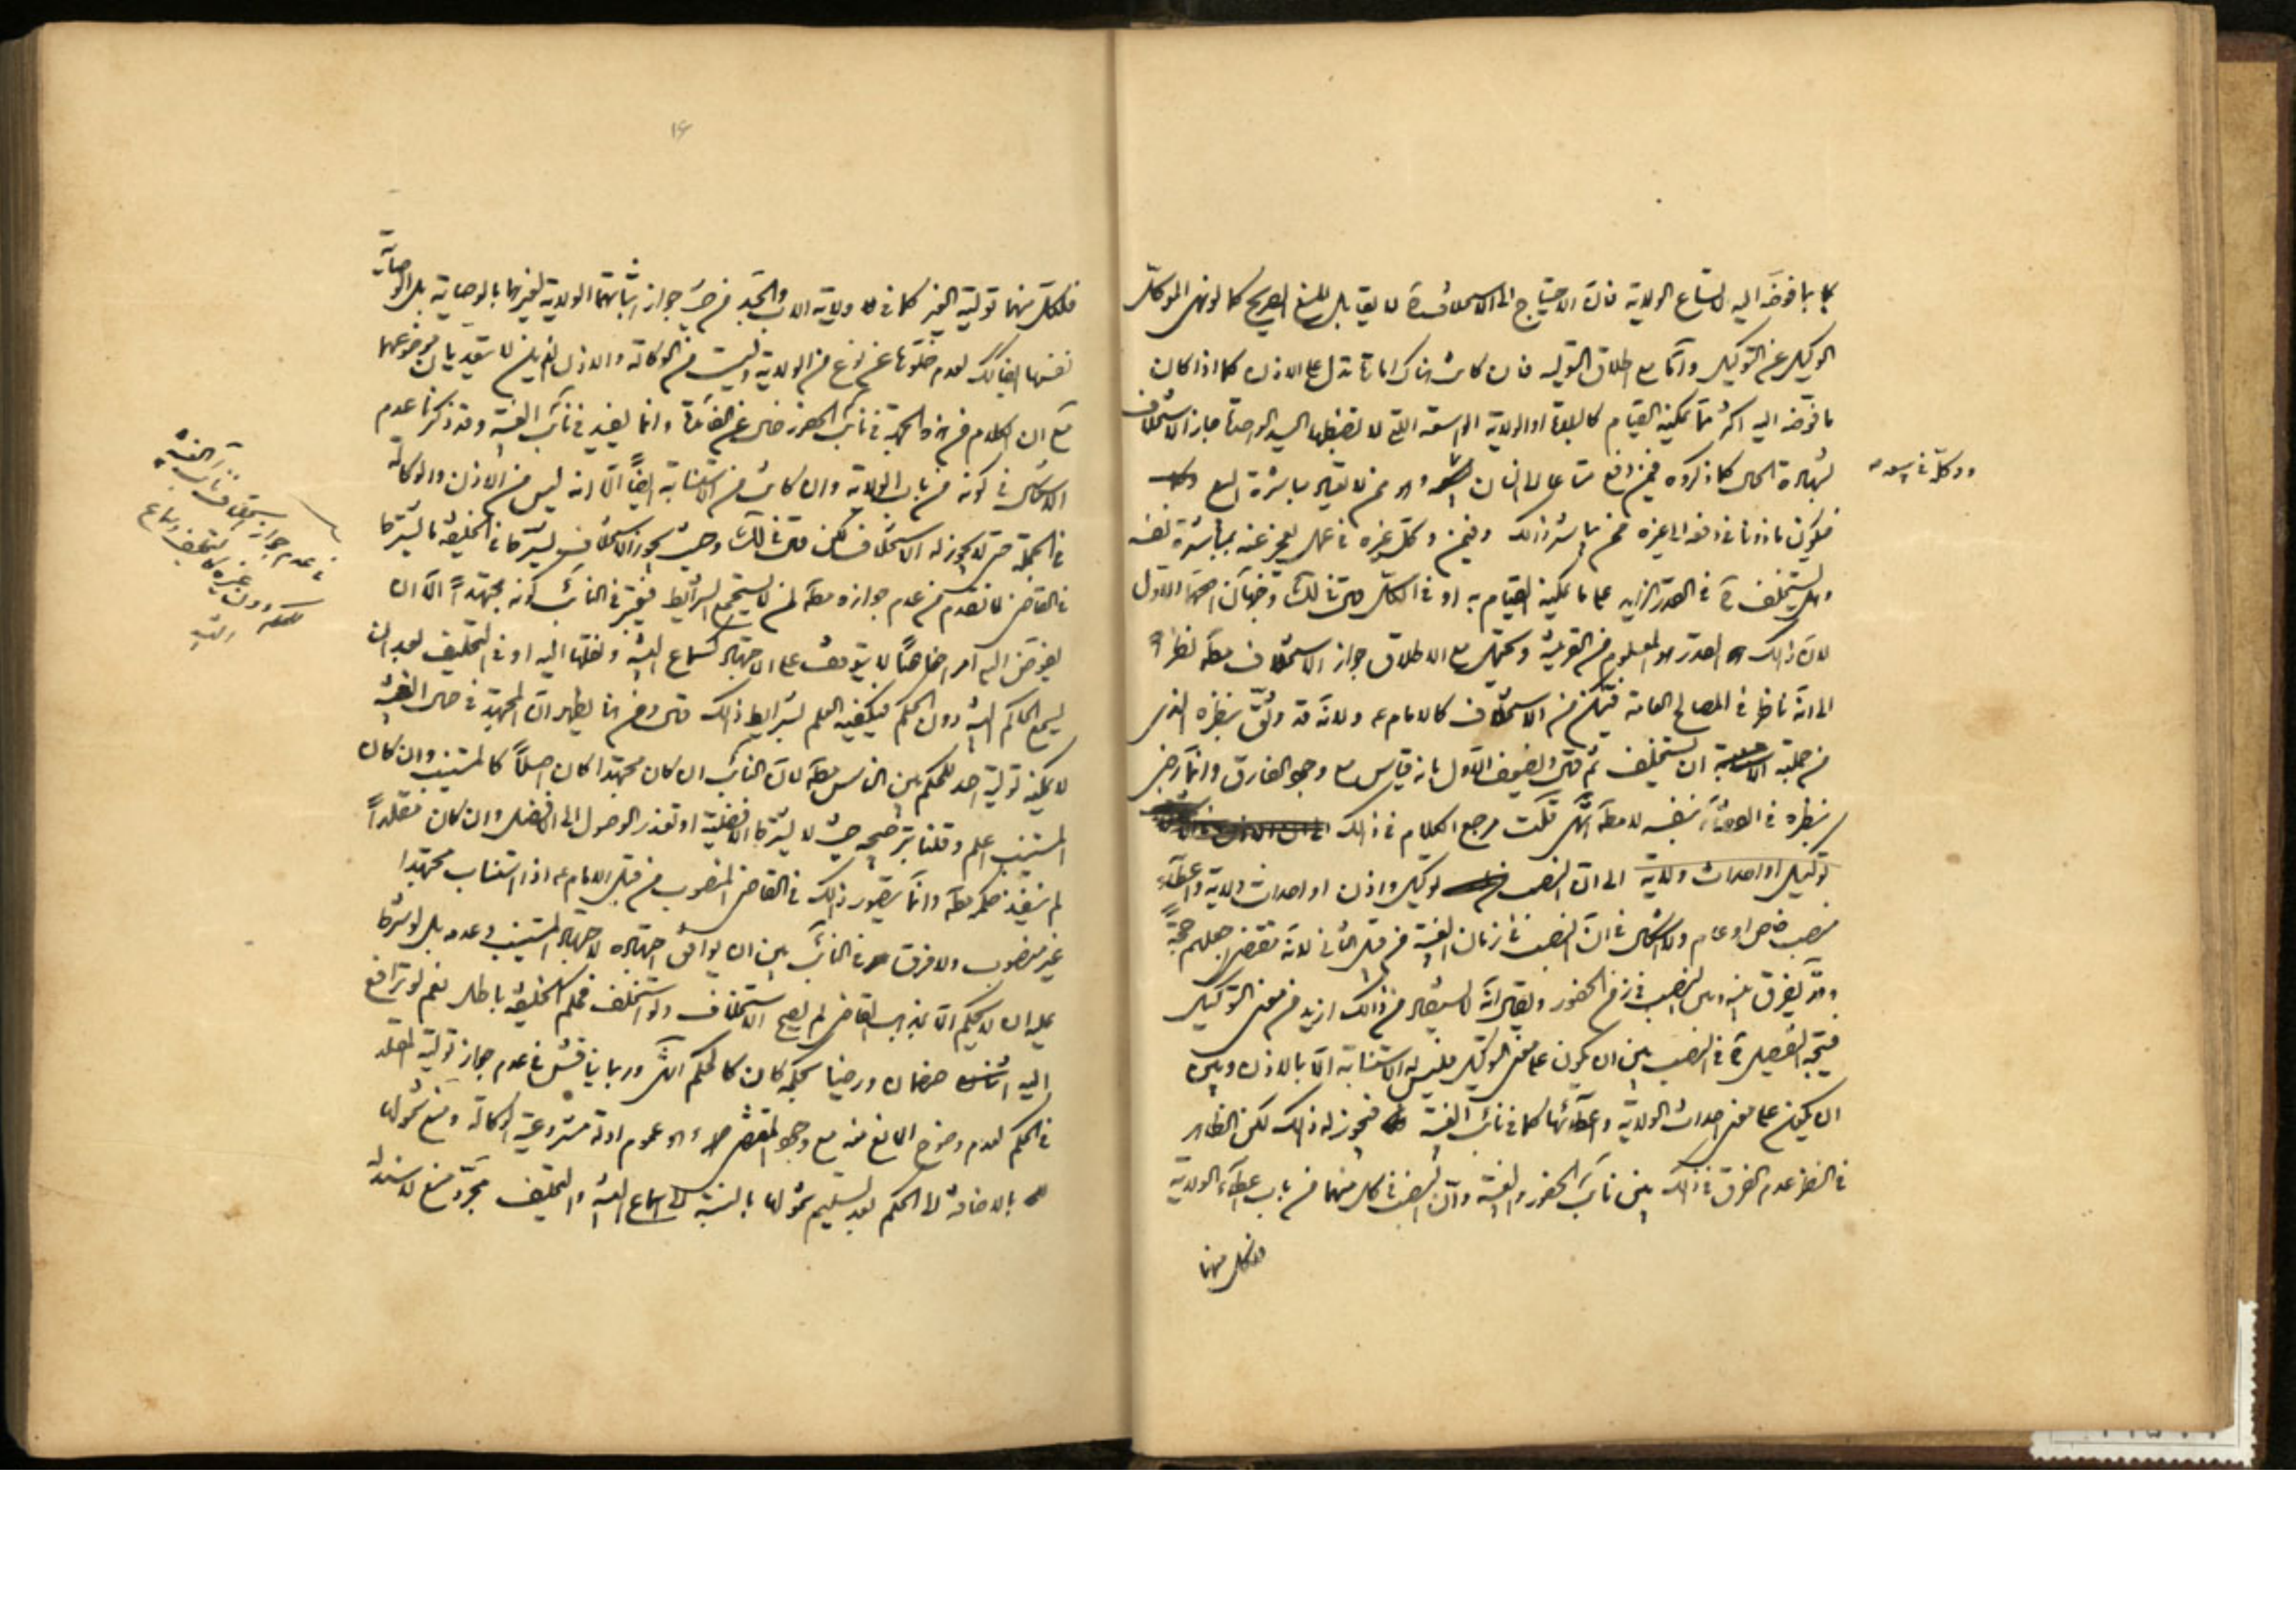 كما بما فوضه اليه لاتساع الولاية فان الاحتياج الى الاستخلاف لا يقابل المنع الصريح كما لو نهى الموكل
الوكيل عن التوكيل واما مع اطلاق التولية فان كانت هناك امارة تدل على الاذن كما اذا كان
ما فوضه اليه اكثر مما يمكنه القيام كالبلاد او الولاية الواسعة التي لا تضبطها اليد الواحدة جاز الاستخلاف
لشهادة الحال كما ذكروه فيمن دفع متاعا الى انسان وهو ممن لا يعتاد مباشرة البيع
فيكون ماذونا في دفعه الى غيره ممن يباشر ذلك وفيمن وكل غيره في عمل يعجز عنه بمباشرة نفسه
وهل يستخلف في القدر الزايد على ما يمكنه القيام به او في الكل قال في لك وجهان اصحهما الاول
لان ذلك القدر هو المعلوم من القرينة ويحتمل مع الاطلاق جواز الاستخلاف مطلقا نظرا
الى انه ناظر في المصالح العامة فيتمكن من الاستخلاف كالامام ع ولانه قد وثق بنظره الذي
من جملته ان يستخلف ثم قال ويضعف الاول بانه قياس مع وجود الفارق وانما رضي
بنظره في القضاء بنفسه لا مطلقا انتهى قلت مرجع الكلام في ذلك
توكيل او احداث ولاية الى ان النصب توكيل واذن او احداث ولاية واعطاء
منصب خاص او عام ولا اشكال في ان النصب في زمان الغيبة من قبيل الثاني لانه مقتضى جعلهم حجة
وقد يفرق بينه وبين النصب في زمن الحضور ويقال انه لا يستفاد من ذلك ازيد من معنى التوكيل
فيتجه التفصيل في النصب بين ان يكون على معنى التوكيل فليس له الاستنابة الا بالاذن وبين
ان يكون على معنى احداث الولاية واعطائها كما في نائب الغيبة فيجوز له ذلك لكن الظاهر
في النظر عدم الفرق في ذلك بين نائب الحضور والغيبة وان النصب في كل منهما من باب اعطاء الولاية
فلكل منهما
ووكل في بيعه
١٤
فلكل منهما تولية الغير كما في ولاية الاب والجد من حيث جواز اثباتهما الولاية لغيرهما بالوصاية بل الوصاية
نفسها ايضا كذلك لعدم خلوها عن نوع من الولاية وليست من الوكالة والاذن اللذين لا يتعديان موضوعهما
مع ان الكلام من هذه الجهة في نائب الحضور خال عن الفائدة وانما يفيد في نائب الغيبة وقد ذكرنا عدم
الاشكال في كونه من باب الولاية وان كانت من الاستنابة ايضا الا انه ليس من الاذن والوكالة
في الجملة حتى لا يجوز له الاستخلاف لكن قال في لك وحيث يجوز الاستخلاف يشترط في الخليفة ما يشترط
في القاضي لما تقدم من عدم جوازه مطلقا لمن لا يستجمع الشرائط فيعتبر في النائب كونه مجتهدا الا ان
يفوض اليه امرا خاصا لا يتوقف على الاجتهاد كسماع البينة ونقلها اليه او في التحليف بعد ان
يسمع الحاكم البينة دون الحكم فيكفيه العلم بشرايط ذلك قال ومن هنا يظهر ان المجتهد في حال الغيبة
لا يمكنه تولية احد للحكم بين الناس مطلقا لان النائب ان كان مجتهدا كان اصلا كالمستنيب وان كان
المستنيب اعلم وقلنا بترجيحه حيث لا يشترط الافضلية او تعذر الوصول الى الافضل وان كان مقلدا
لم ينفذ حكمه مطلقا وانما يتصور ذلك في القاضي المنصوب من قبل الامام ع اذا استناب مجتهدا
غير منصوب ولا فرق في النائب بين ان يوافق اجتهاده لاجتهاد المستنيب وعدمه بل لو شرط
عليه ان لا يحكم الا بمذهب القاضي لم يصح الاستخلاف ولو استخلف فحكم الخليفة باطل نعم لو ترافع
اليه خصمان ورضيا بحكمه كان كالحكم انتهى وربما يناقش في عدم جواز تولية المقلد
في الحكم لعدم وضوح المانع منه مع وجود المقتضي وهو عموم ادلة مشروعية الوكالة ومنع شمولها
بالاضافة الى الحكم بعد تسليم شمولها بالنسبة الى سماع البينة والتحليف مجرد منع لا سند له
في عدم جواز استخلاف نائب الغيبة